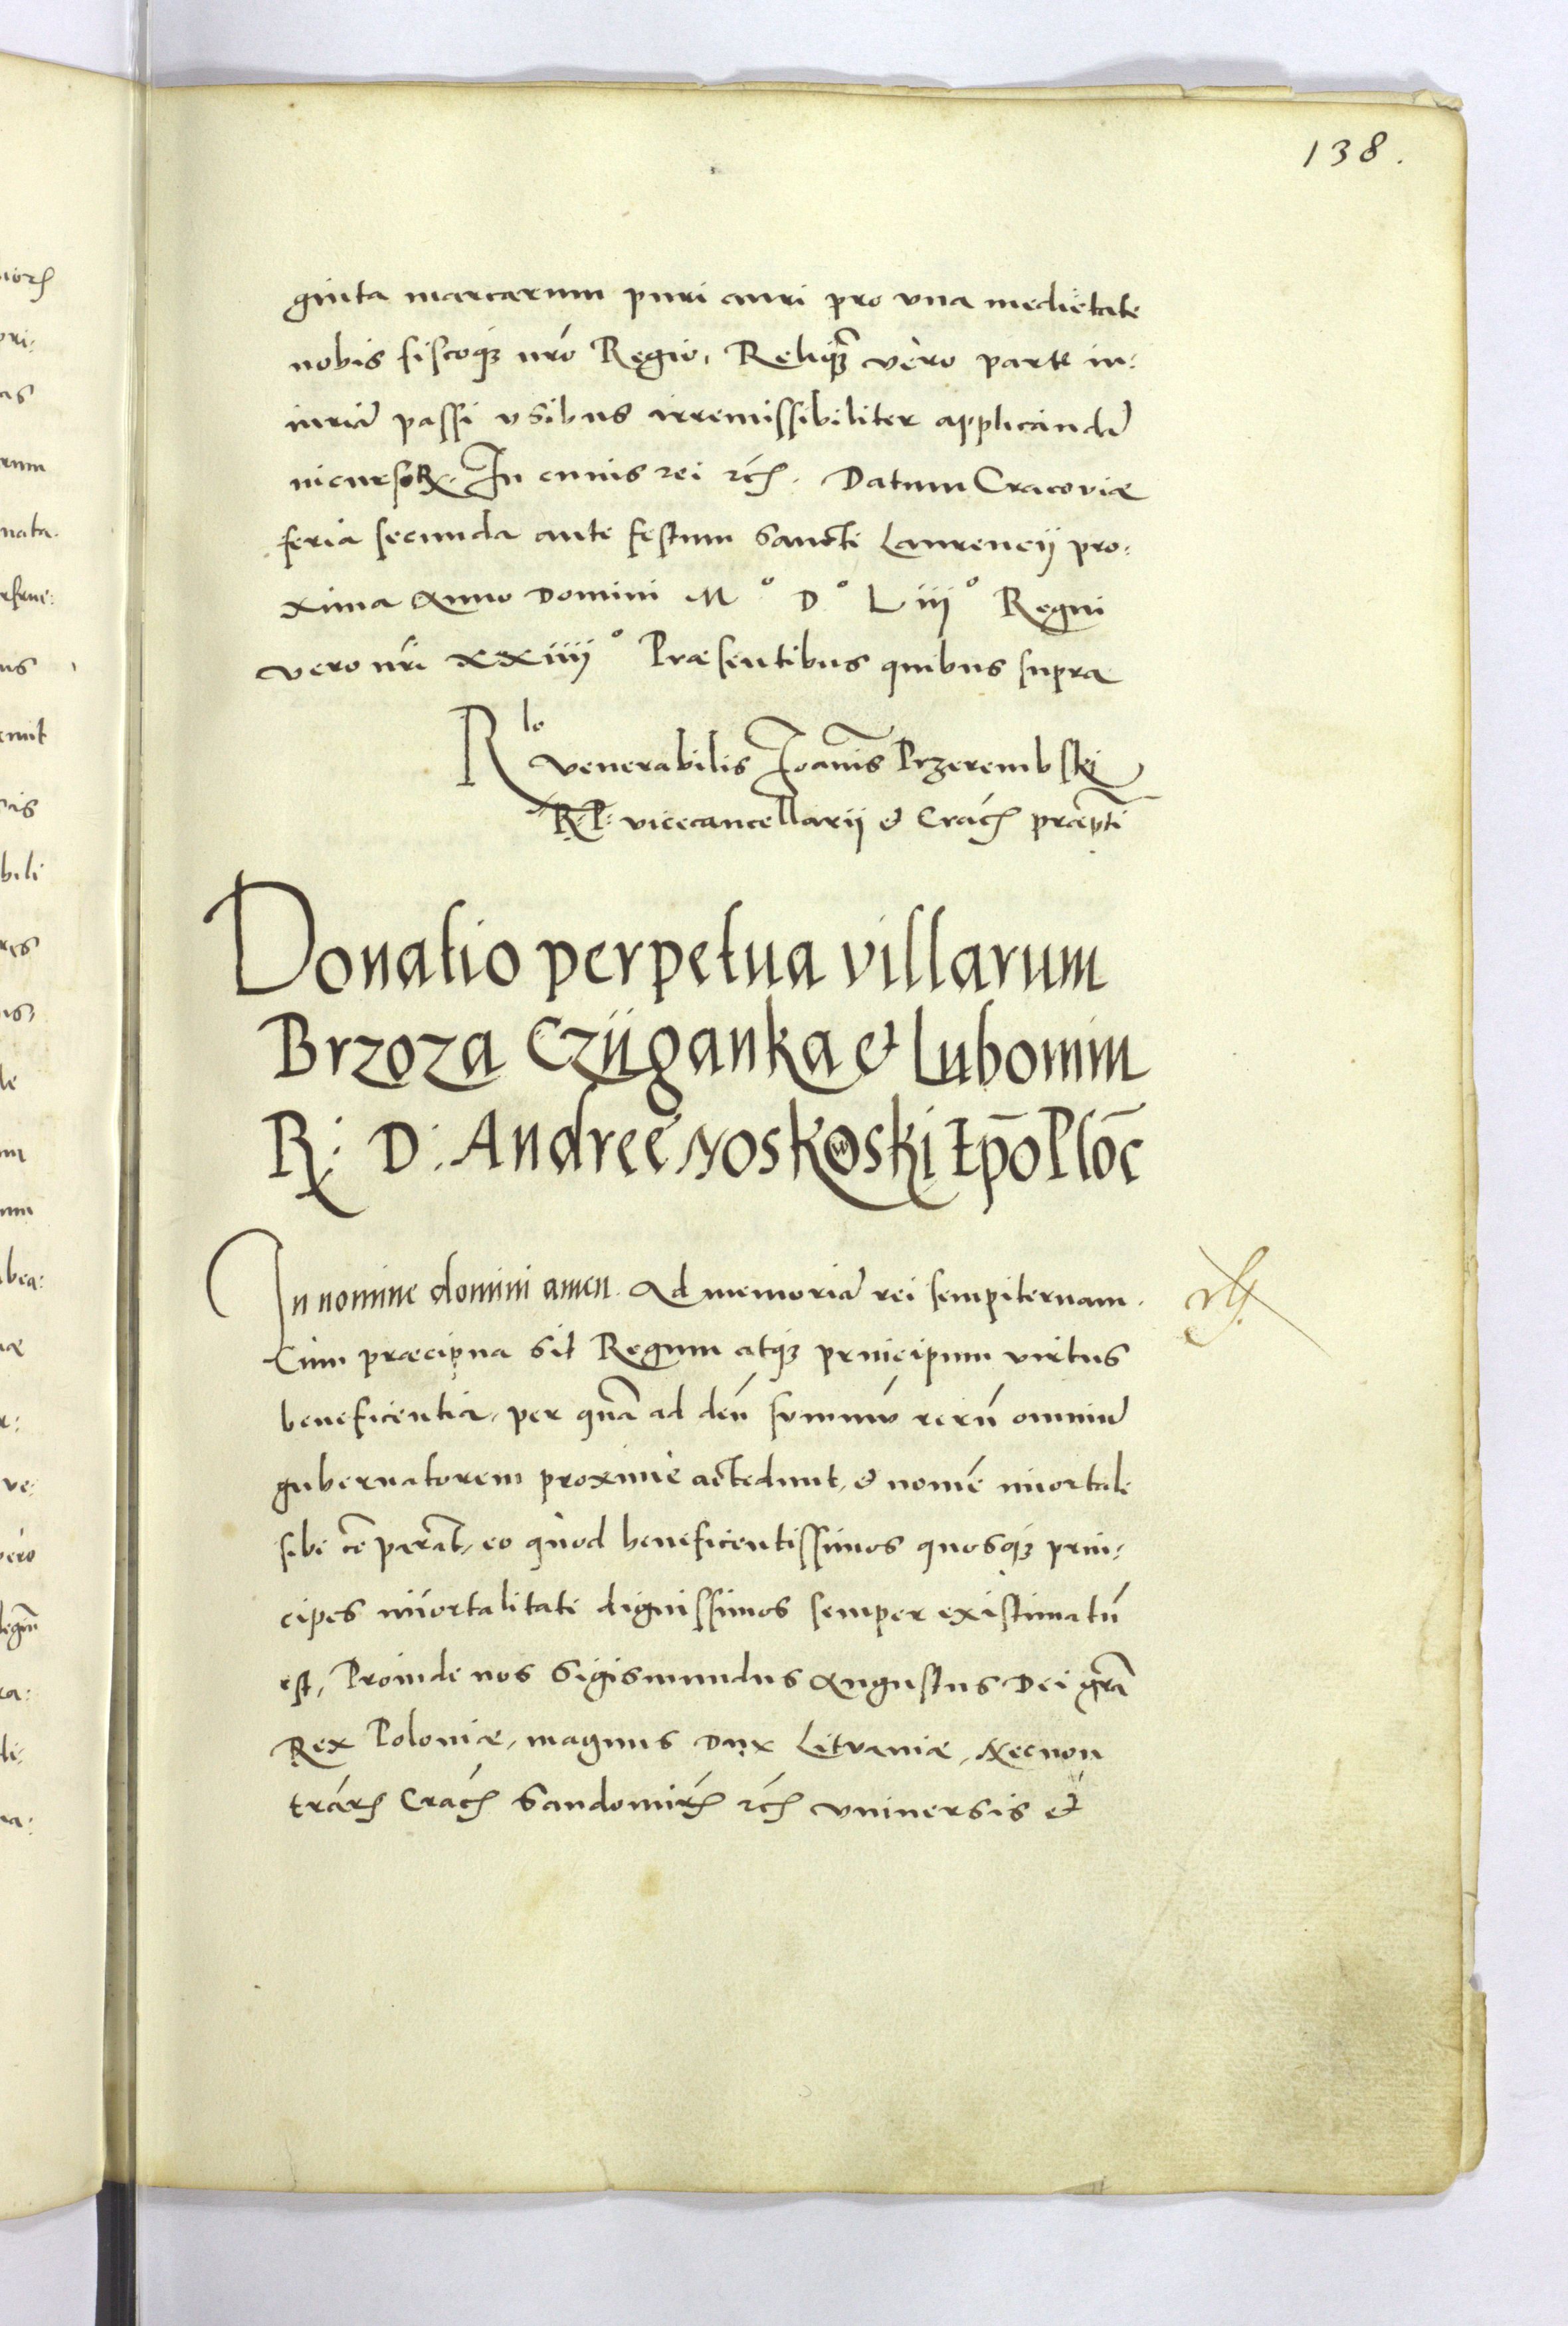 138.
ginta marcarum puri auri pro vna medietate
nobis fiscoq3 nrõ Regio, Reliquã vero parte in-
iuriã passi vsibus irremissibiliter applicandã
incursor. In cuius rei etc. Datum Cracoviæ
feria secunda ante festum Sancti Laurencij pro-
xima Anno Domini M° D° Liij° Regni
vero nri xxiiij° Præsentibus quibus supra
Rlo venerabilis Joannis Przerembski
R. P. vicecancellarij et Crac præpti
Donatio perpetua villarum
Brzoza Czÿganka et Lubomin
R: D: Andree Noskowski Epõ Ploc̃
In nomine domini amen. Ad memoriã rei sempiternam.
Cum præcipua sit Regum atq3 principum virtus
beneficentia, per quã ad deũ summũ rerũ omniũ
gubernatorem proximè accedunt, et nomẽ imortale
sibi cõparãt, eo quod beneficentissimos quosq3 prin-
cipes imortalitate dignissimos semper existimatũ
est, Proinde nos Sigismundus Augustus Dei grã
Rex Poloniæ, magnus Dux Lituaniæ, Necnon
trãr Crac Sandomir etc vniuersis et